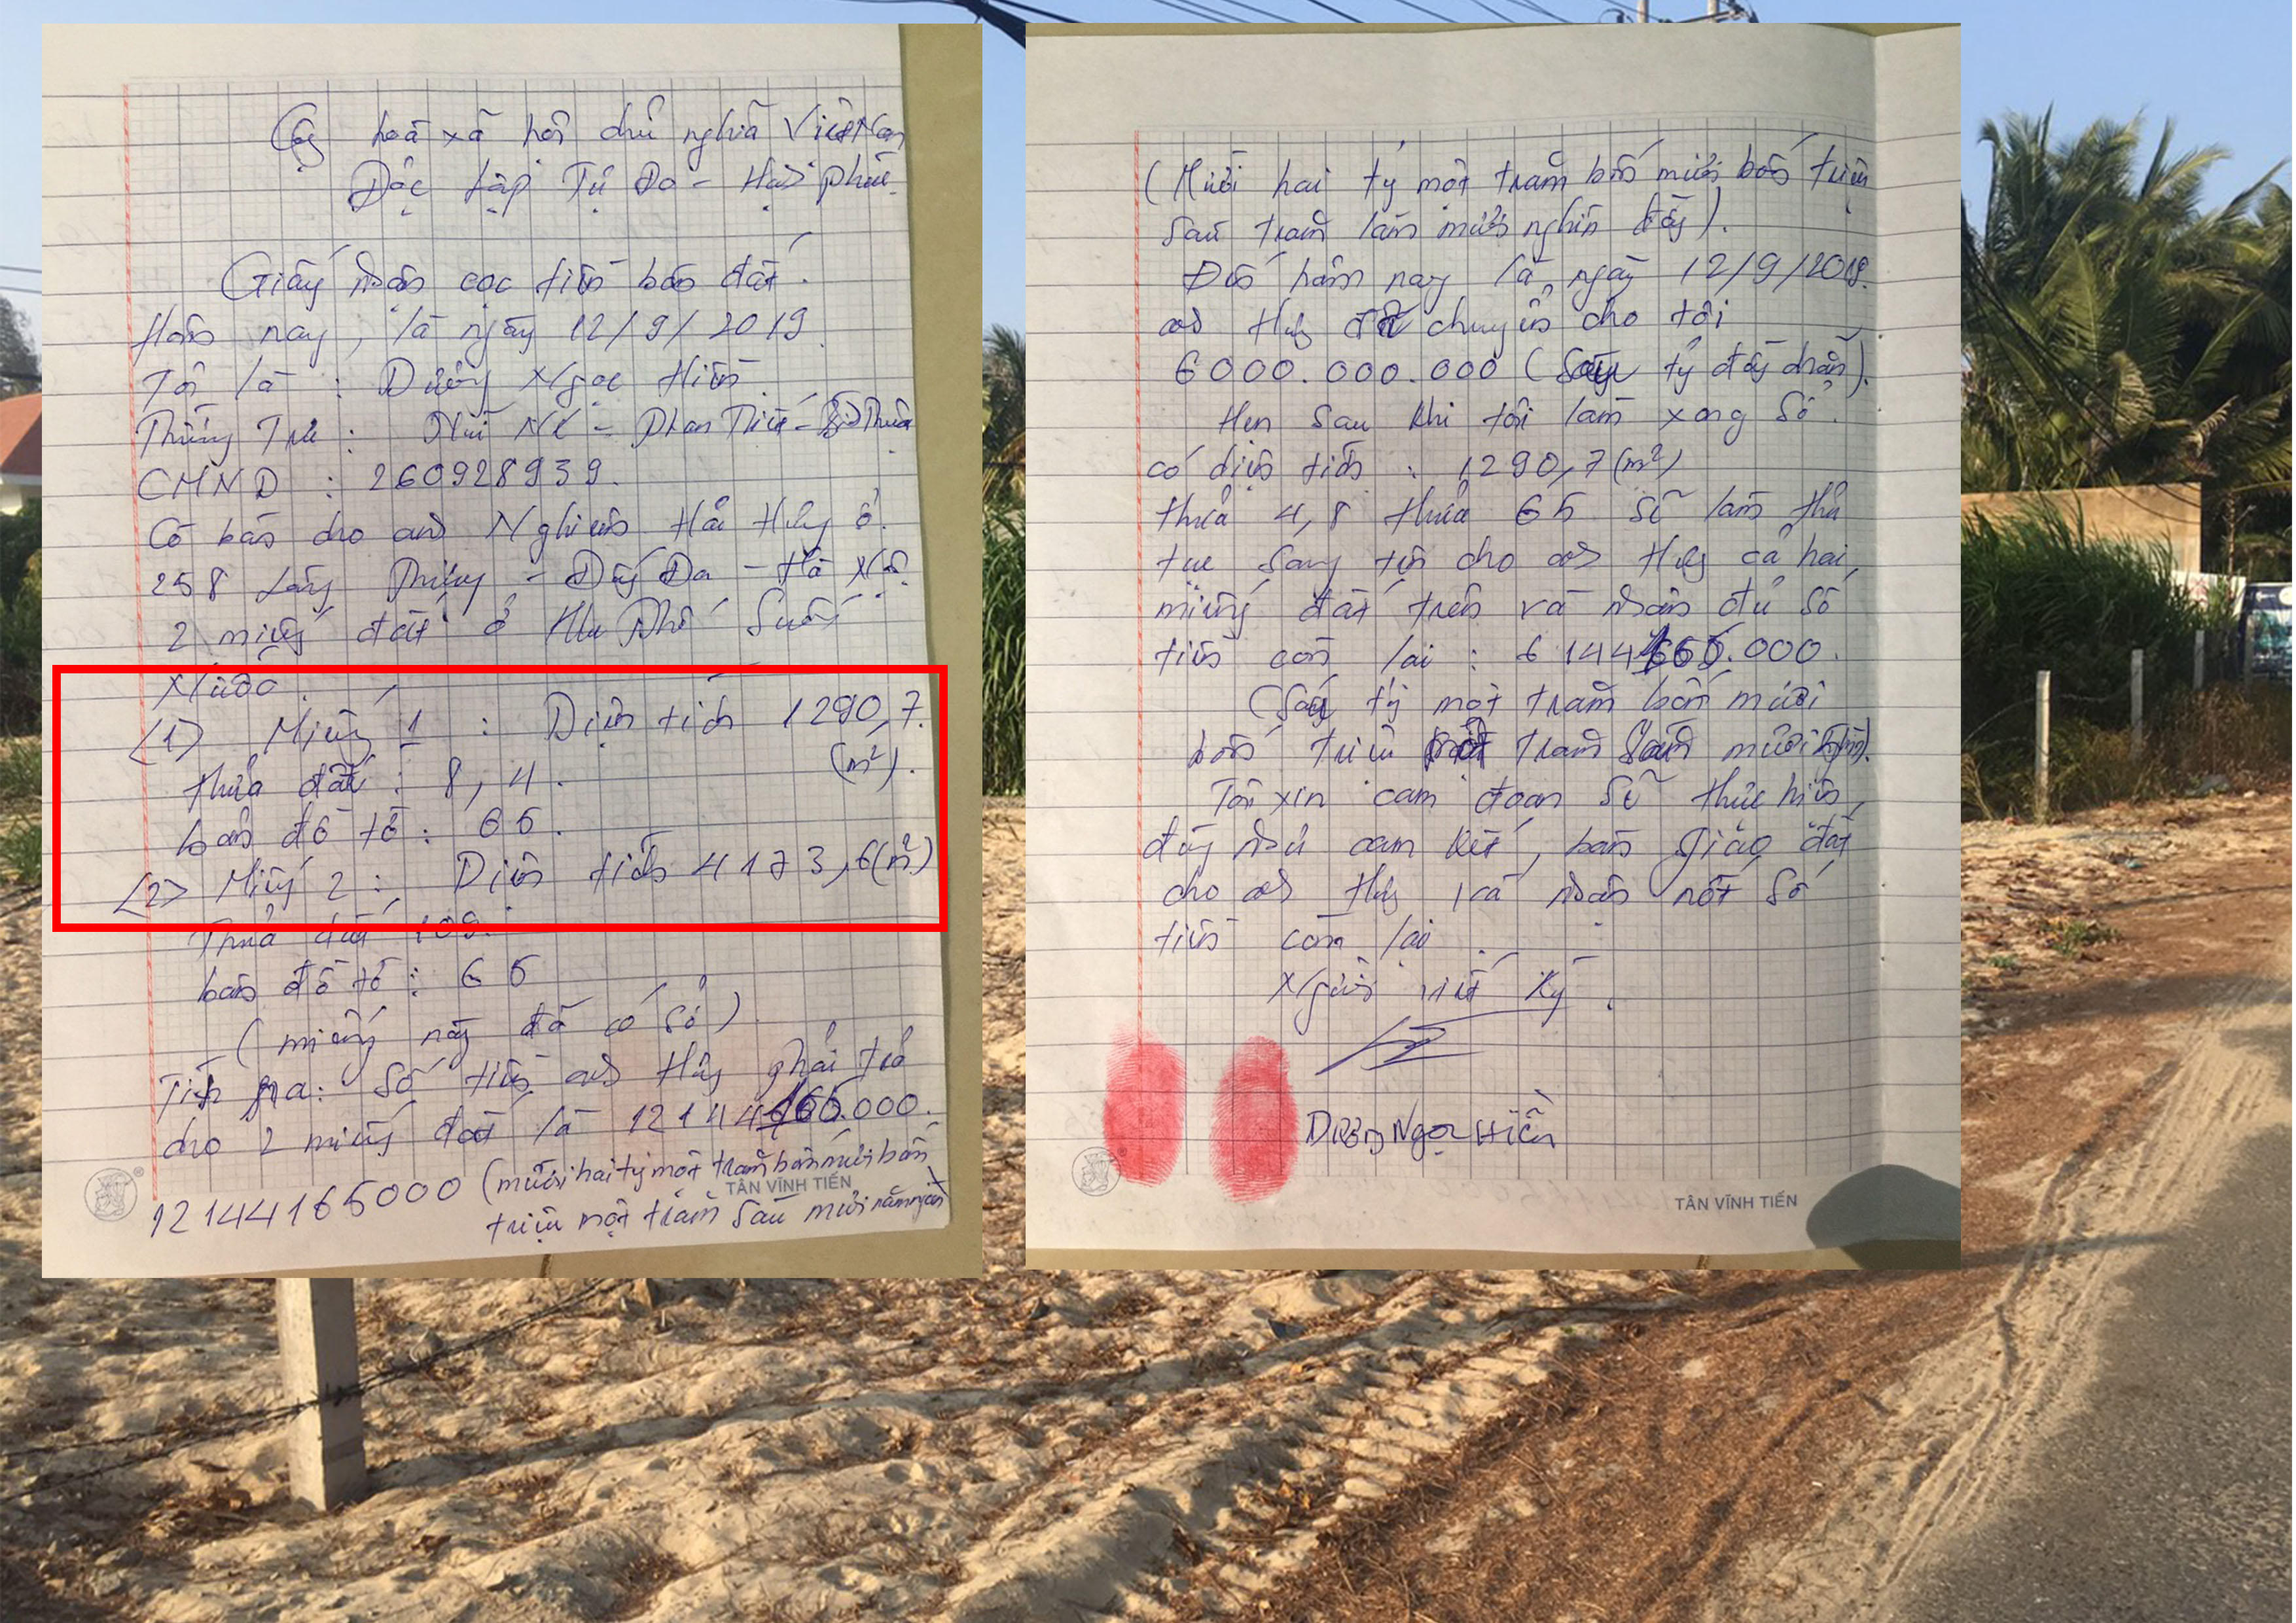 Cộng hoà xã hội chủ nghĩa Việt Nam
Độc lập Tự Do - Hạnh phúc
Giấy nhận cọc tiền bán đất.
Hôm nay, là ngày 12/9/2019
Tôi là : Dương Ngọc Hiền
Thường Trú : Mũi Né - Phan Thiết - Bình Thuận
CMND : 260928939.
Có bán cho anh Nghiêm Hải Huy ở
258 Láng - Đống Đa - Hà Nội
2 miếng đất ở Khu Phố Suối
Nước.
<1> Miếng 1 : Diện tích 1290,7
(m²).
thửa đất : 8, 4.
bản đồ tờ : 65.
<2> Miếng 2 : Diện tích 4173,6(m²)
Thửa đất 109.
bản đồ tờ : 65
(miếng này đã có sổ)
: Số tiền anh Huy phải trả
cho 2 miếng đất là 12144165.000.
12144165000 (mười hai tỷ một trăm bốn mươi bốn
triệu một trăm sáu mươi năm nghìn
TÂN VĨNH TIẾN
(Mười hai tỷ một trăm bốn mươi bốn triệu
sáu trăm năm mươi nghìn đồng).
Đến hôm nay là ngày 12/9/2019.
anh Huy đã chuyển cho tôi
6000.000.000 (Sáu tỷ đồng chẵn).
Hẹn sau khi tôi làm xong sổ
có diện tích : 1290,7(m²)
thửa 4,8 thửa 65 sẽ làm thủ
tục sang tên cho anh Huy cả hai
miếng đất trên và nhận đủ số
tiền còn lại : 6144165.000
(Sáu tỷ một trăm bốn mươi
bốn triệu một trăm sáu mươi năm).
Tôi xin cam đoan sẽ thực hiện
đúng như cam kết, bàn giao đất
cho anh Huy và nhận nốt số
tiền còn lại.
Người viết ký
Dương Ngọc Hiền
TÂN VĨNH TIẾN